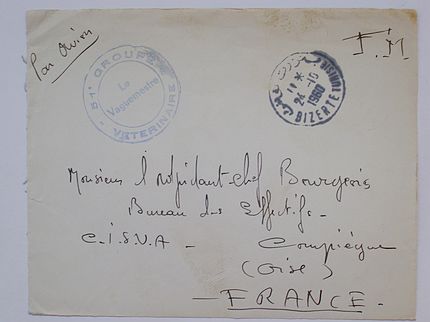 Par Avion
F.M
51e GROUPE VETERINAIRE
Le
Vaguemestre
BIZERTE TUNISIE
11 *
24-10
1960
Monsieur l'Adjudant-chef Bourgeois
Bureau des Effectifs -
C.I.S.V.A - Compiègne
(Oise)
- FRANCE -